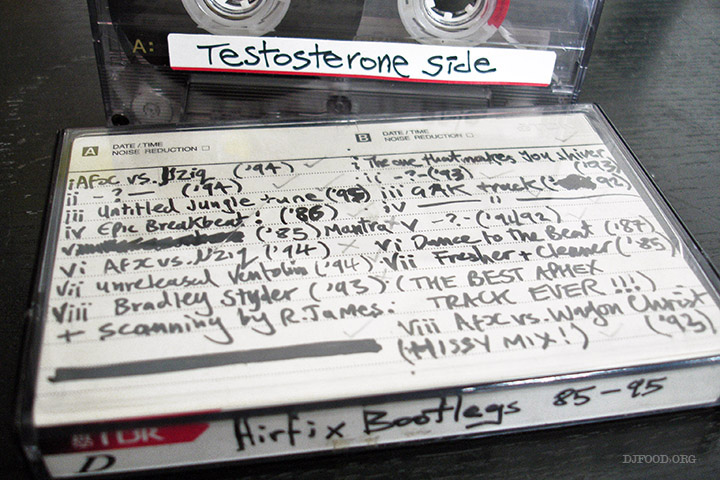 A:
Testosterone side
A DATE/TIME
NOISE REDUCTION
i Afxc vs. µziq ('94)
ii -?- ('94)
iii Untitled Jungle tune ('95)
iv Epic Breakbeat: ('86)
v ('85) Mantra
vi Afxc vs. µziq ('94)
vii unreleased Ventolin ('94)
viii Bradley Styder ('93)
+ scanning by R.James:
B DATE/TIME
NOISE REDUCTION
i The one that makes you shiver
('93)
ii -?- ('93)
iii GAK track (' 92)
iv — " —
v -?- ('9492)
vi Dance to the Beat ('87)
vii Fresher + Cleaner ('85)
(THE BEST APHEX
TRACK EVER!!!)
viii Afxc vs. Wagon Christ
(HISSY MIX!) ('93)
TDK
D
Airfix Bootlegs 85-95
DJFOOD.ORG